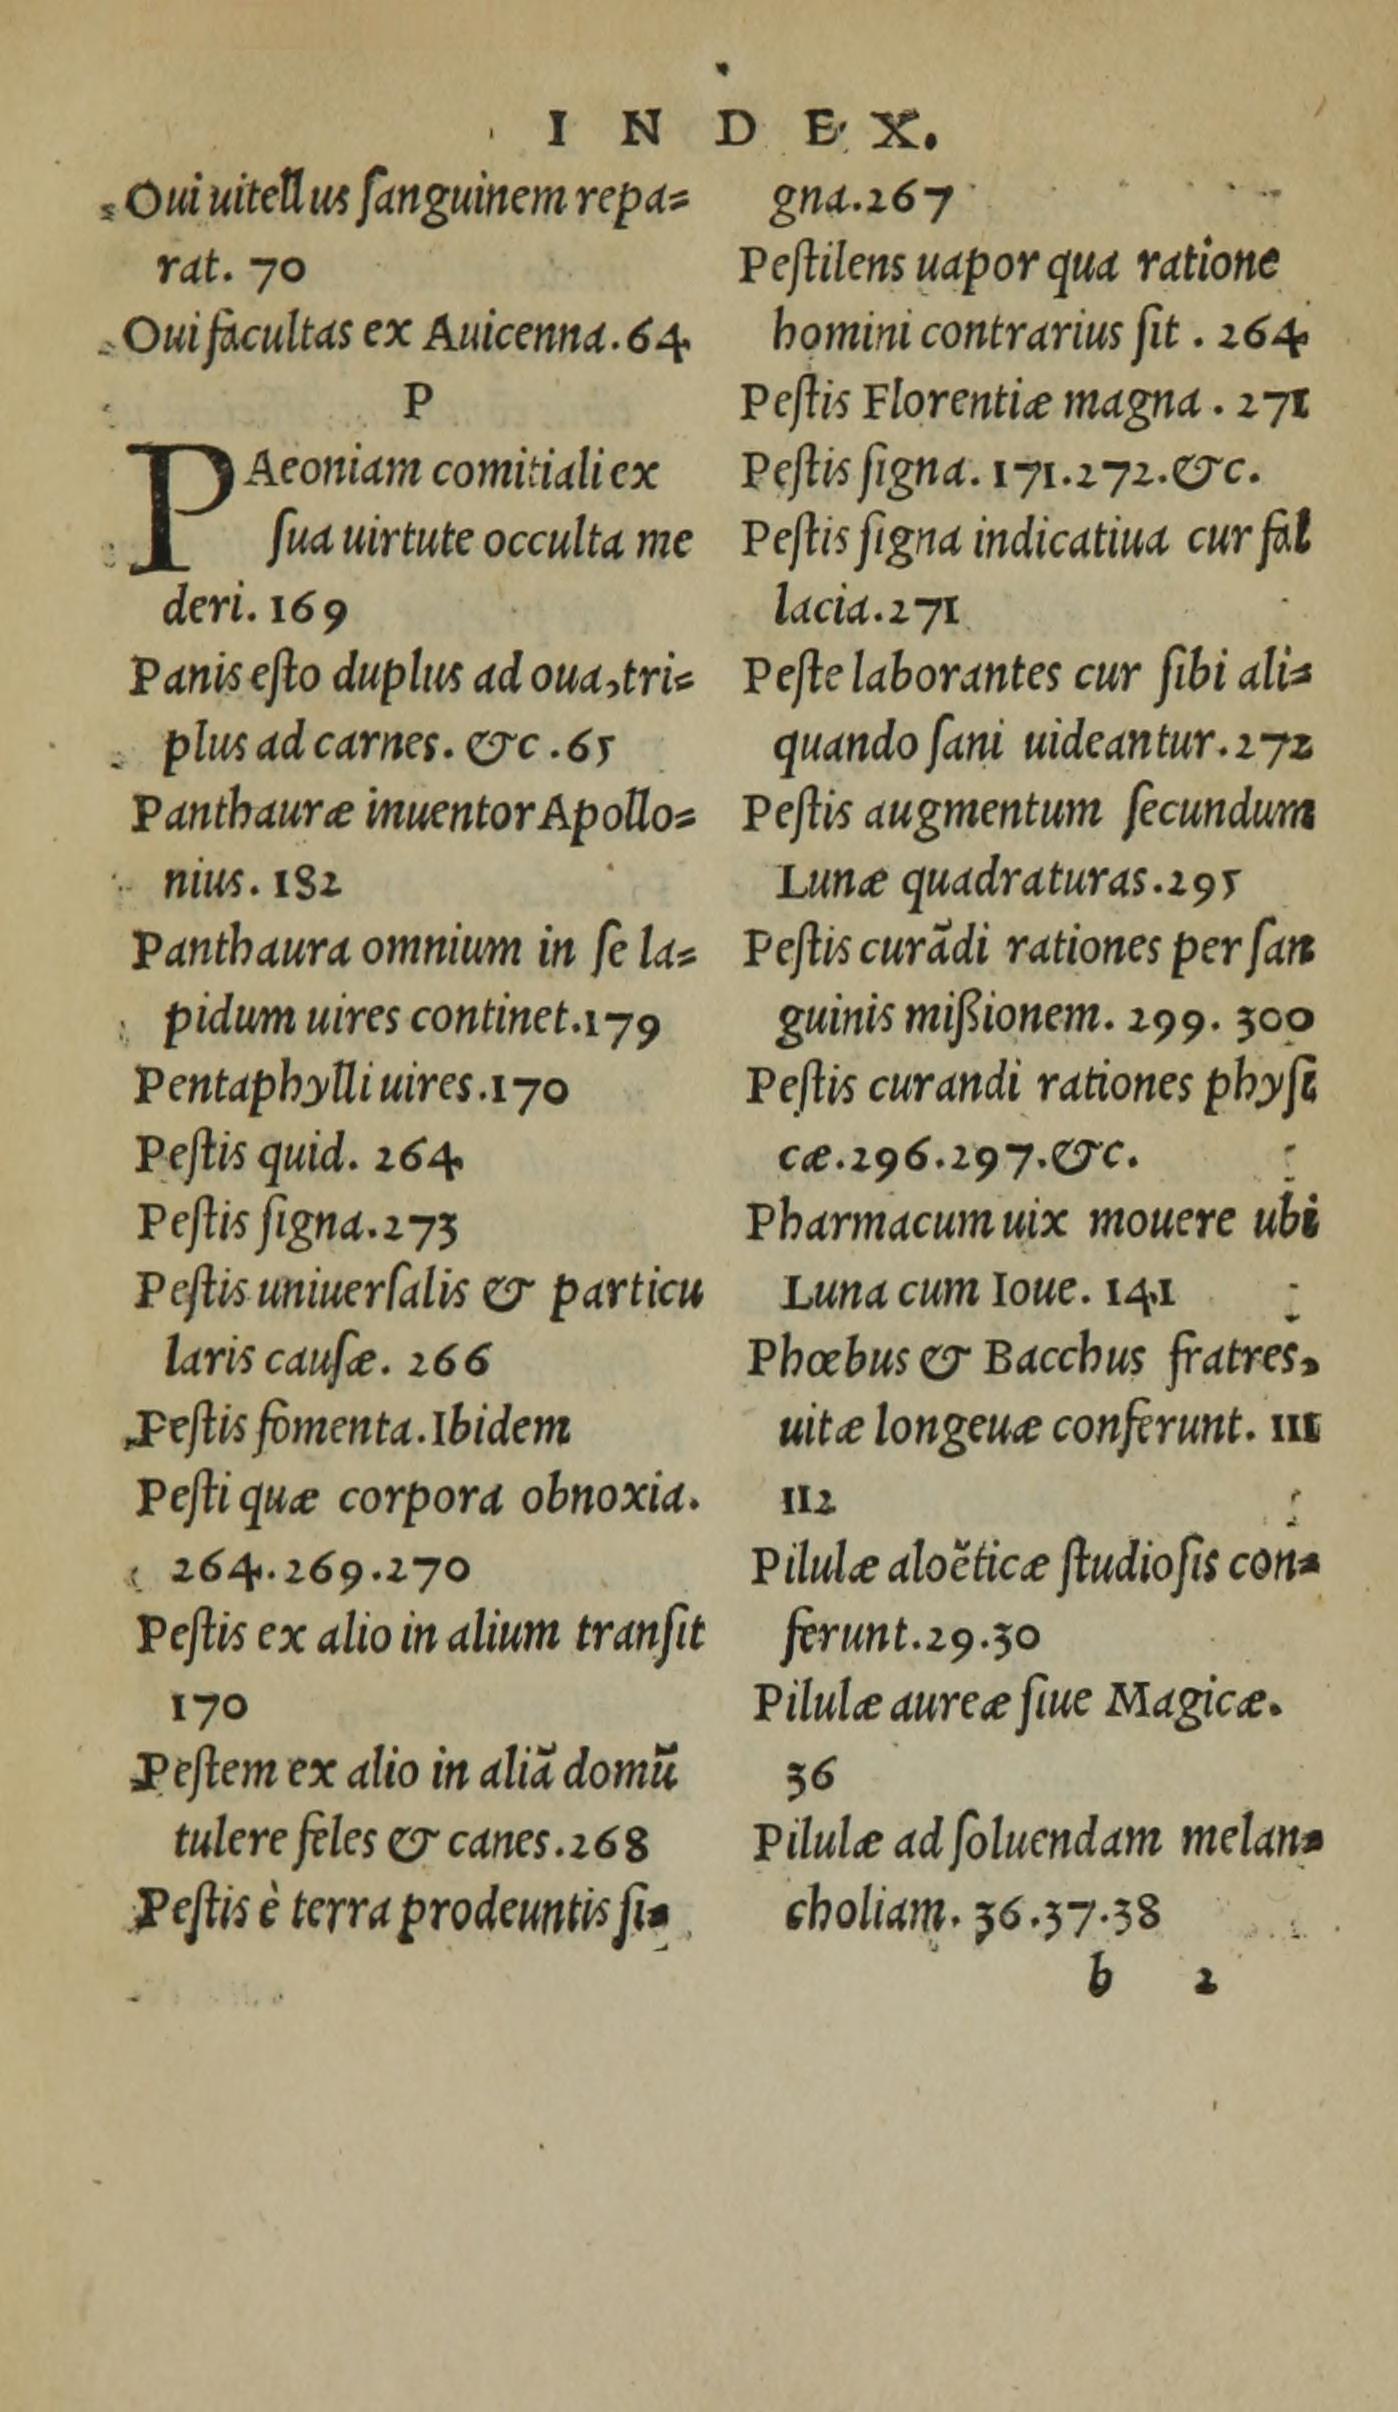 INDEX.
Oui uitellus ſanguinem repa=
rat. 70
Oui facultas ex Auicenna.64
P
PAeoniam comitiali ex
ſua uirtute occulta me
deri. 169
Panis eſto duplus ad oua,tri=
plus ad carnes. &c .65
Panthauræ inuentor Apollo=
nius. 182
Panthaura omnium in ſe la=
pidum uires continet.179
Pentaphylli uires.170
Peſtis quid. 264
Peſtis ſigna.273
Peſtis uniuerſalis & particu
laris cauſæ. 266
Peſtis fomenta.Ibidem
Peſti quæ corpora obnoxia.
264.269.270
Peſtis ex alio in alium tranſit
170
Peſtem ex alio in aliā domū
tulere feles & canes.268
Peſtis è terra prodeuntis ſi=
gna.267
Peſtilens uapor qua ratione
homini contrarius ſit . 264
Peſtis Florentiæ magna . 271
Peſtis ſigna. 171.272.&c.
Peſtis ſigna indicatiua cur fal
lacia.271
Peſte laborantes cur ſibi ali=
quando ſani uideantur.272
Peſtis augmentum ſecundum
Lunæ quadraturas.295
Peſtis curādi rationes per ſan
guinis mißionem. 299. 300
Peſtis curandi rationes phyſi
cæ.296.297.&c.
Pharmacum uix mouere ubi
Luna cum Ioue. 141
Phœbus & Bacchus fratres,
uitæ longeuæ conferunt. 111
112
Pilulæ aloëticæ ſtudioſis con=
ferunt.29.30
Pilulæ aureæ ſiue Magicæ.
36
Pilulæ ad ſoluendam melan=
choliam. 36.37.38
b 2